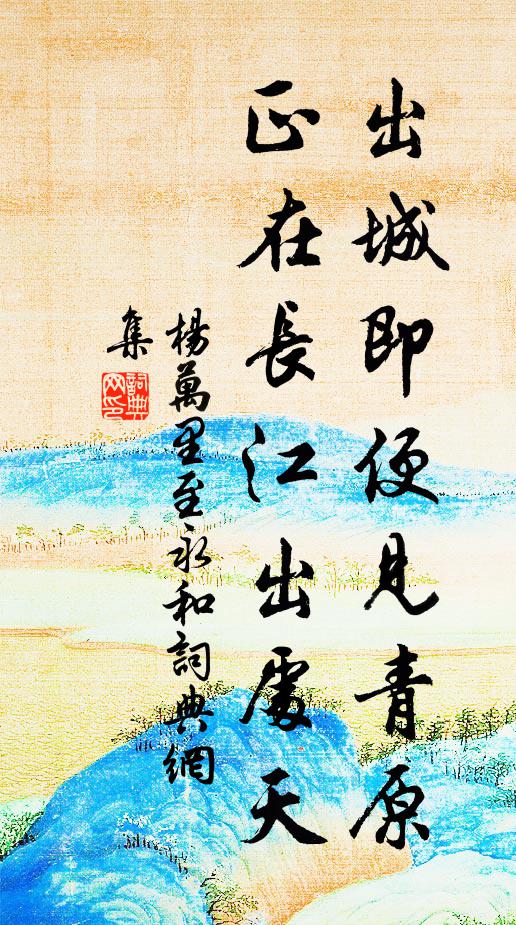 出城即便見青原
正在長江出處天
楊萬里至永和詞典網
集
詞典網印